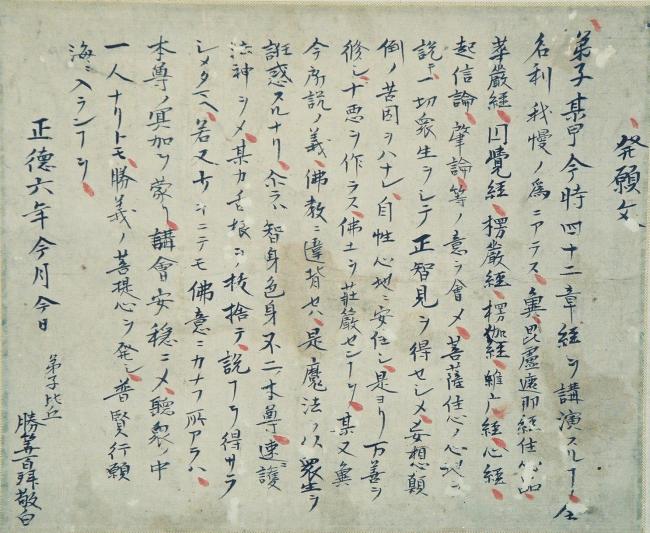 発願文
弟子某甲今時四十二章経ヲ講演スルㄱ全
名利我慢ノ為ニアラス冀毘盧遮那経住心品
華厳経円覚経楞厳経楞伽経維广経心経
起信論肇論等ノ意ヲ會メ菩薩住心ノ心地ヲ
説テ一切衆生ヲシテ正智見ヲ得セシメ妄想顛
倒ノ苦因ヲハナレ自性心地ニ安住シ是ヨリ万善ヲ
修シ十悪ヲ作ラス佛土ヲ荘厳センㄱヲ某又冀
今所説ノ義佛教ニ違背セハ是魔法ノ衆生ヲ
誑惑スルナリ尒ラハ智身色身不二ノ本尊速ニ護
法神ヲメ某カ舌根ヲ抜捨テ説フヿ得サラ
シメタマヘ若又少シニテモ佛意ニカナフ所アラハ
本尊ノ冥加ヲ蒙リ講會安穏ニメ聴衆ノ中
一人ナリトモ勝義ノ菩提心ヲ発シ普賢行願
海ニ入ランㄱヲ
正徳六年今月今日
弟子比丘
勝等百拝敬白